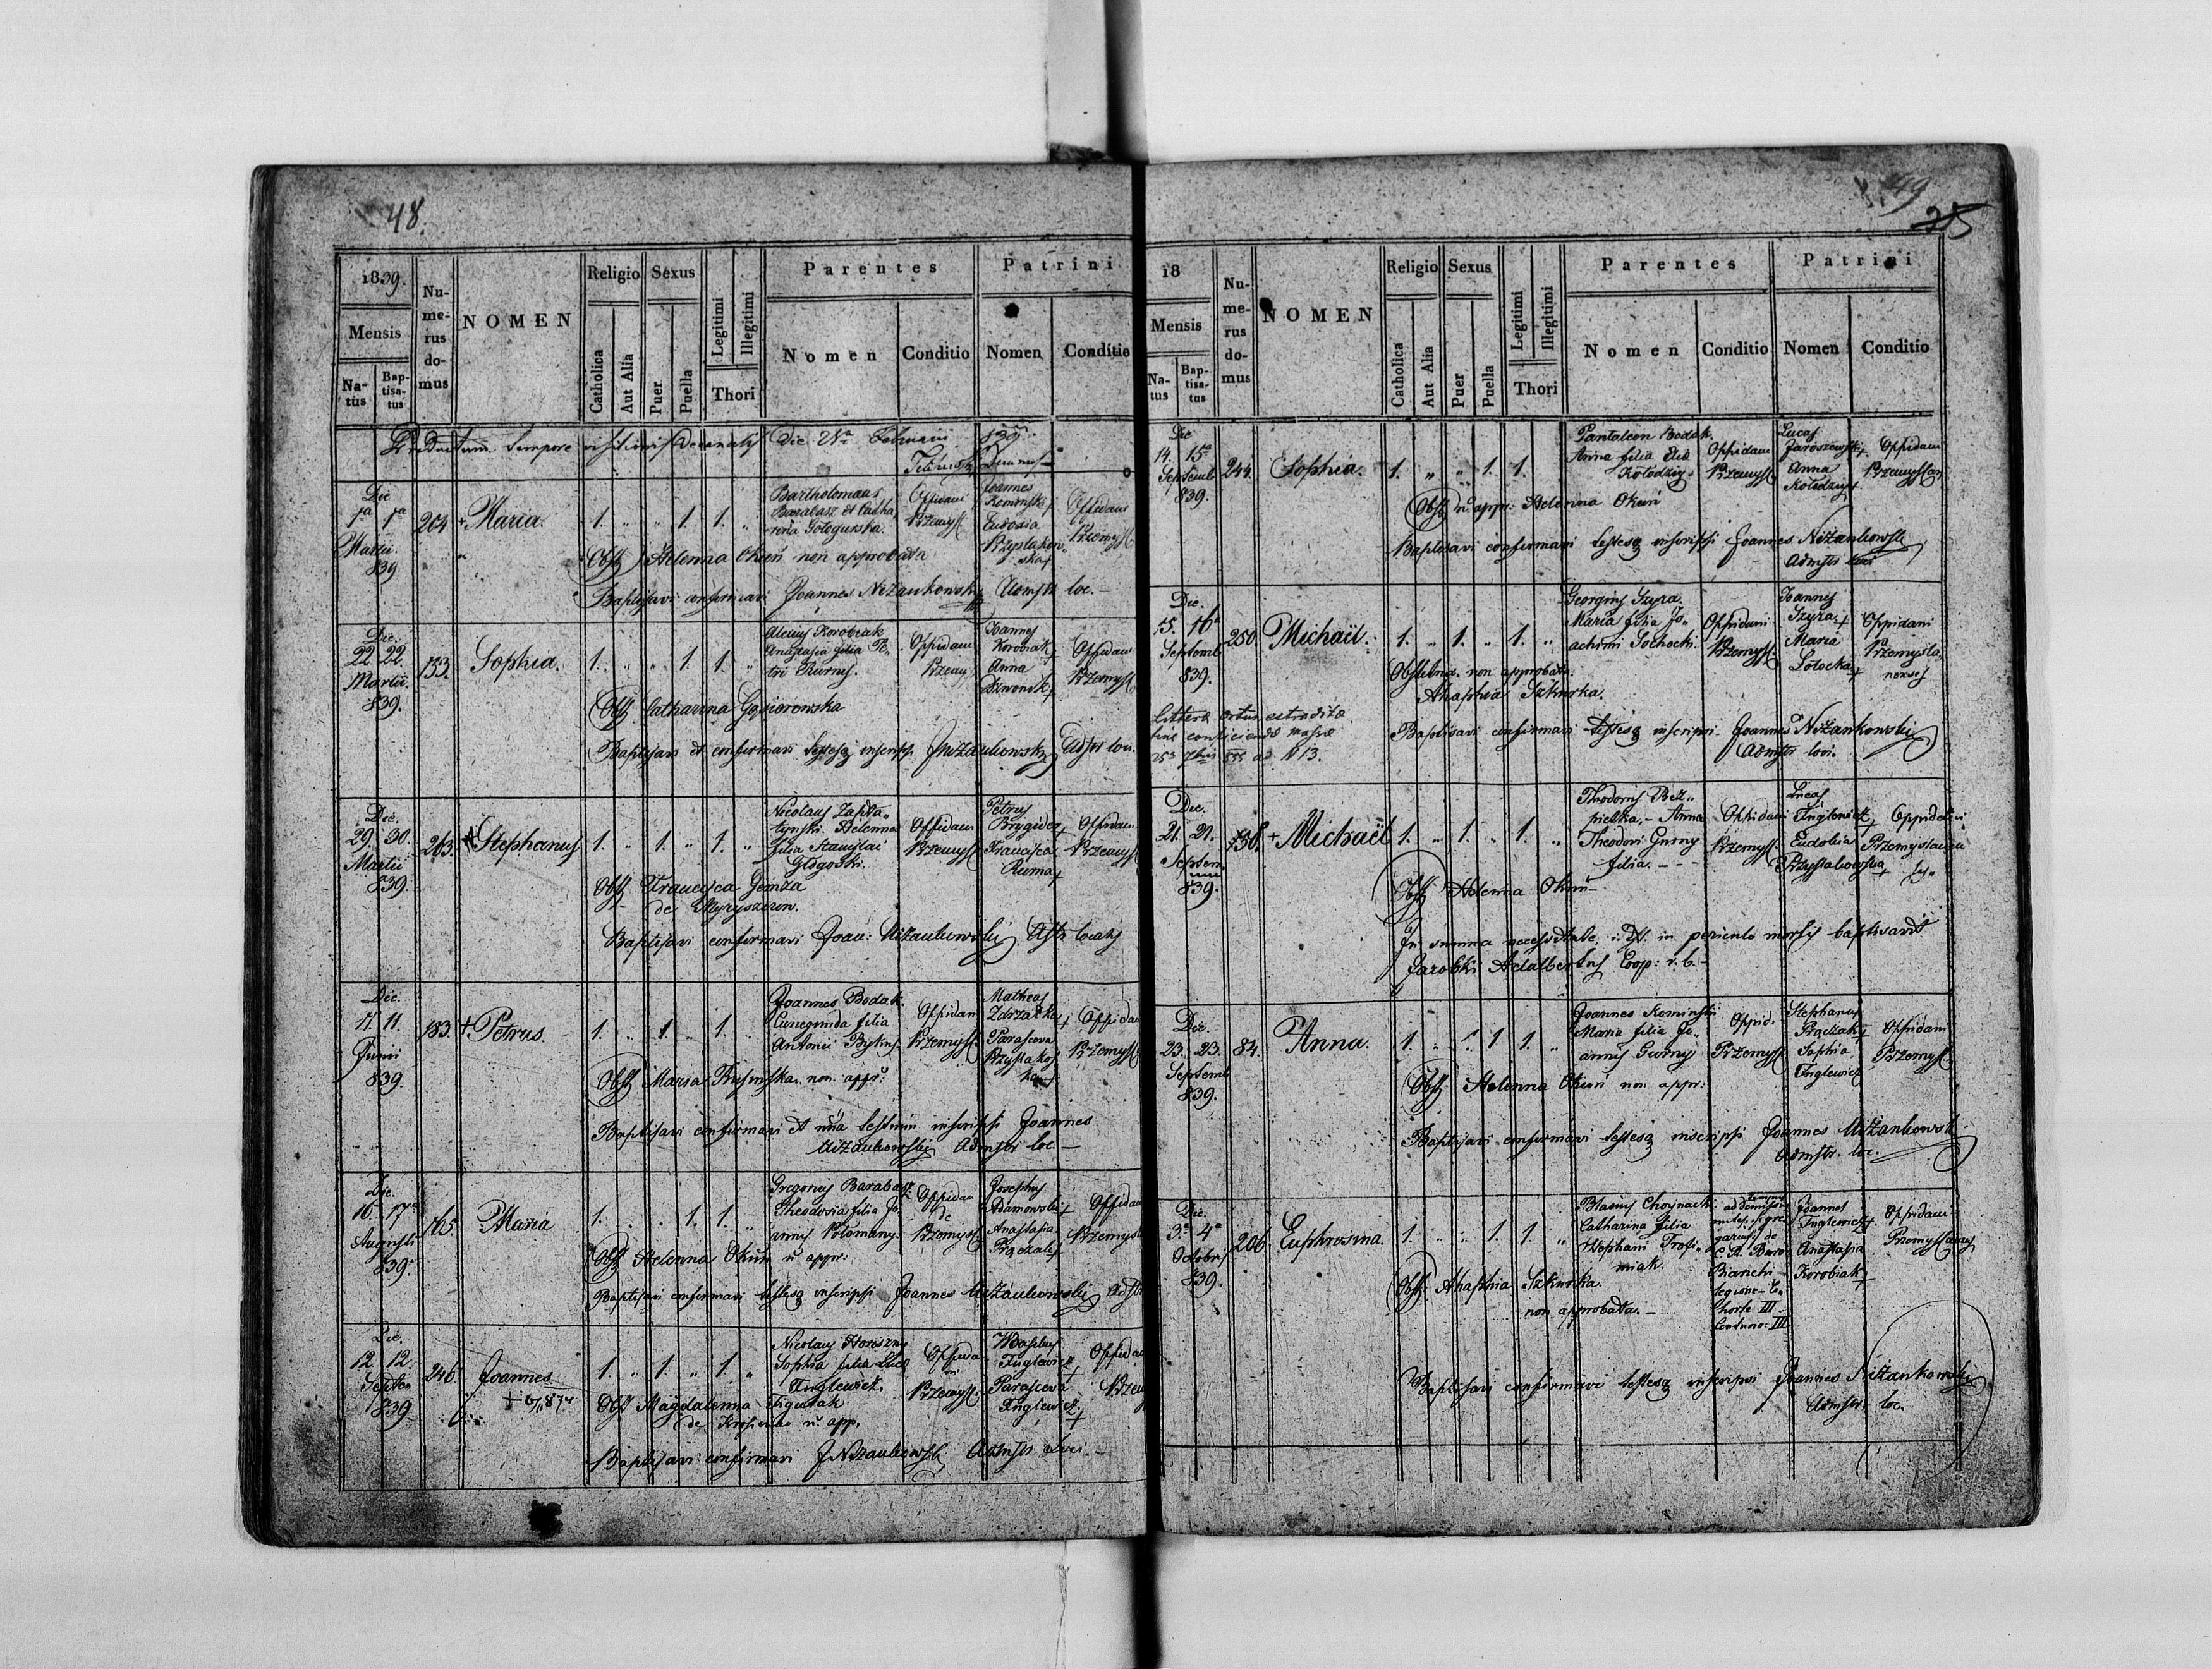 48.
1839.
Mensis
Na-
tus
Bap-
tisa-
tus
Nu-
me-
rus
do-
mus
NOMEN
Religio
Catholica
Aut Alia
Sexus
Puer
Puella
Legitimi
Illegitimi
Thori
Parentes
Nomen
Conditio
Patrini
Nomen
Conditio
Productum tempore visitationis Decanalis Die Februarii 839
Die
1a 1a
Martii
839
204
+ Maria.
1. " " 1. 1. "
Bartholomaus
Barabasz et Catha
rina Gologurska.
Oppidani
Przemysl
Joannes
Kominski
Eudoxia
Przystakow
ska+
Oppidani
Przemysl
Obst Helenna Okuń non approbata
Baptisavi confirmavi Joannes Niżankowski Admstr loc.
Die.
22. 22.
Martii.
839.
153.
Sophia.
1. " " 1. 1. "
Alexius Korobiak
Anastasia filia Pe-
tri Kurny.
Oppidani
Przemy
Joannes
Korobiak+
Anna
Dzwonik+
Oppidani
Przemysl
Obst Catharina Gąsiorowska
Baptisavi et confirmavi testesq inscripsi JNiżankowski Admstr loci.
Die.
29. 30.
Martii
839.
263.
+ Stephanus
1. " 1. " 1. "
Nicolaus Zapła-
tynski. Helenna
filia Stanislai
Głogoski.
Oppidani
Przemysl
Petrus
Brygider+
Francisca
Kurna+
Oppidani
Przemysl
Obst Francisca Gemza
de Meryszczow.
Baptisavi confirmavi Joan: Niżankowski Adstr localis
Die.
11. 11.
Junii
839.
183.
+ Petrus.
1. " 1. " 1. "
Joannes Bodak.
Cunegunda filia
Antonii Bykus.
Oppidani
Przemysl.
Matheas
Zdrzałka+
Parasceva
Przystakos
ka+
Oppidani
Przemysl
Obst Maria non appr:
Baptisavi confirmavi et una testium inscripsi Joannes
Niżankowski Admstr loc.
Die.
16. 17a
Augusti
839.
165.
Maria
1. " " 1. 1. "
Gregorius Barabasz
Theodosia filia Jo-
annis Potomany.
Oppidani
Przemysl.
Josephus
Adamowski+
Anastasia
Prączak+
Oppidani
Przemysl
Obst Helenna Okuń n appr:
Baptisavi confirmavi testesq inscripsi Joannes Niżankowski Adstr
Die.
12. 12.
Septem
839.
246.
Joannes
+ 6/11 874
1. " 1. " 1. "
Nicolaus Horiszny
Sophia filia Lucæ
Inglewicz.
Oppidani
Przemysl.
Wasilius
Inglewicz+
Parasceva
Inglewicz+
Oppidani
Przemy
Obst Magdalenna Figurak
de Krosienko n. app.
Baptisavi confirmavi JNiżankowski Admstr loci.
49
25
18
Mensis
Na-
tus
Bap-
tisa-
tus
Nu-
me-
rus
do-
mus
NOMEN
Religio
Catholica
Aut Alia
Sexus
Puer
Puella
Legitimi
Illegitimi
Thori
Parentes
Nomen
Conditio
Patrini
Nomen
Conditio
Die
14. 15a
Septemb
839.
244.
Sophia.
1. " " 1. 1.
Pantaleon Bodak.
Anna filia Eliæ
Kołodziy.
Oppidani
Przemysl
Lucas
Jaroszewski+
Anna
Kołodziy+
Oppidani
Przemyslan
Obst n appr: Helenna Okuń
Baptisavi confirmavi testesq inscripsi Joannes Niżankowski
Admstr loci
Die.
15. 16a
Septemb
839.
250.
Michaël.
1. " 1. " 1. "
Georgius Szyra.
Maria filia Jo-
achimi Sochocki.
Oppidani
Przemysl.
Joannes
Szyra+
Maria
Sołocka+
Oppidani
Przemysla
nenses
Obstetrix non approbata.
Ahaphia Szkurka.
Littera ortus extradita
Baptisavi confirmavi testesq inscripsi. Joannes Niżankowski
Admstr loci.
Die.
21. 21.
Septem
839.
138.
+ Michaël
1. " 1. " 1. "
Theodorus Bez-
pietka, - Anna
Theodori Gurny
filia. - - -
Oppidani
Przemysl.
Lucas
Inglewicz+
Eudokia
Przystakowska+
Oppidani
Przemyslanen
ses
Obst Helenna Okuń
In summa necessitate, i. e. in periculo mortis baptisavit
Jarolski Adalbertus Coop: r. l.
Die.
23. 23.
Septemb
839.
84.
Anna.
1. " " 1 1. "
Joannes Kominski
Maria filia Jo-
annis Gurny
Oppid:
Przemysl
Stephanus
Prączak+
Sophia
Inglewicz
Oppidani
Przemysl
Obst. Helenna Okuń non appr:
Baptisavi confirmavi testesq inscripsi Joannes Niżankowski
Admstr. loc.
Die.
3a 4a
Octobris
839.
206
Euphrosina.
1. " " 1. 1. "
Blasius Choynacki
Catharina filia
Stephani Trofi-
miak.
Bianchi
Legione
horte III
Centurio: III
Joannes
Inglewicz+
Anastasia
Korobiak+
Oppidani
Przemyslanens
Obst Ahaphia Szkurka.
non approbata.
Baptisavi confirmavi testesq inscripsi Joannes Niżankowski
Admstr. loc.